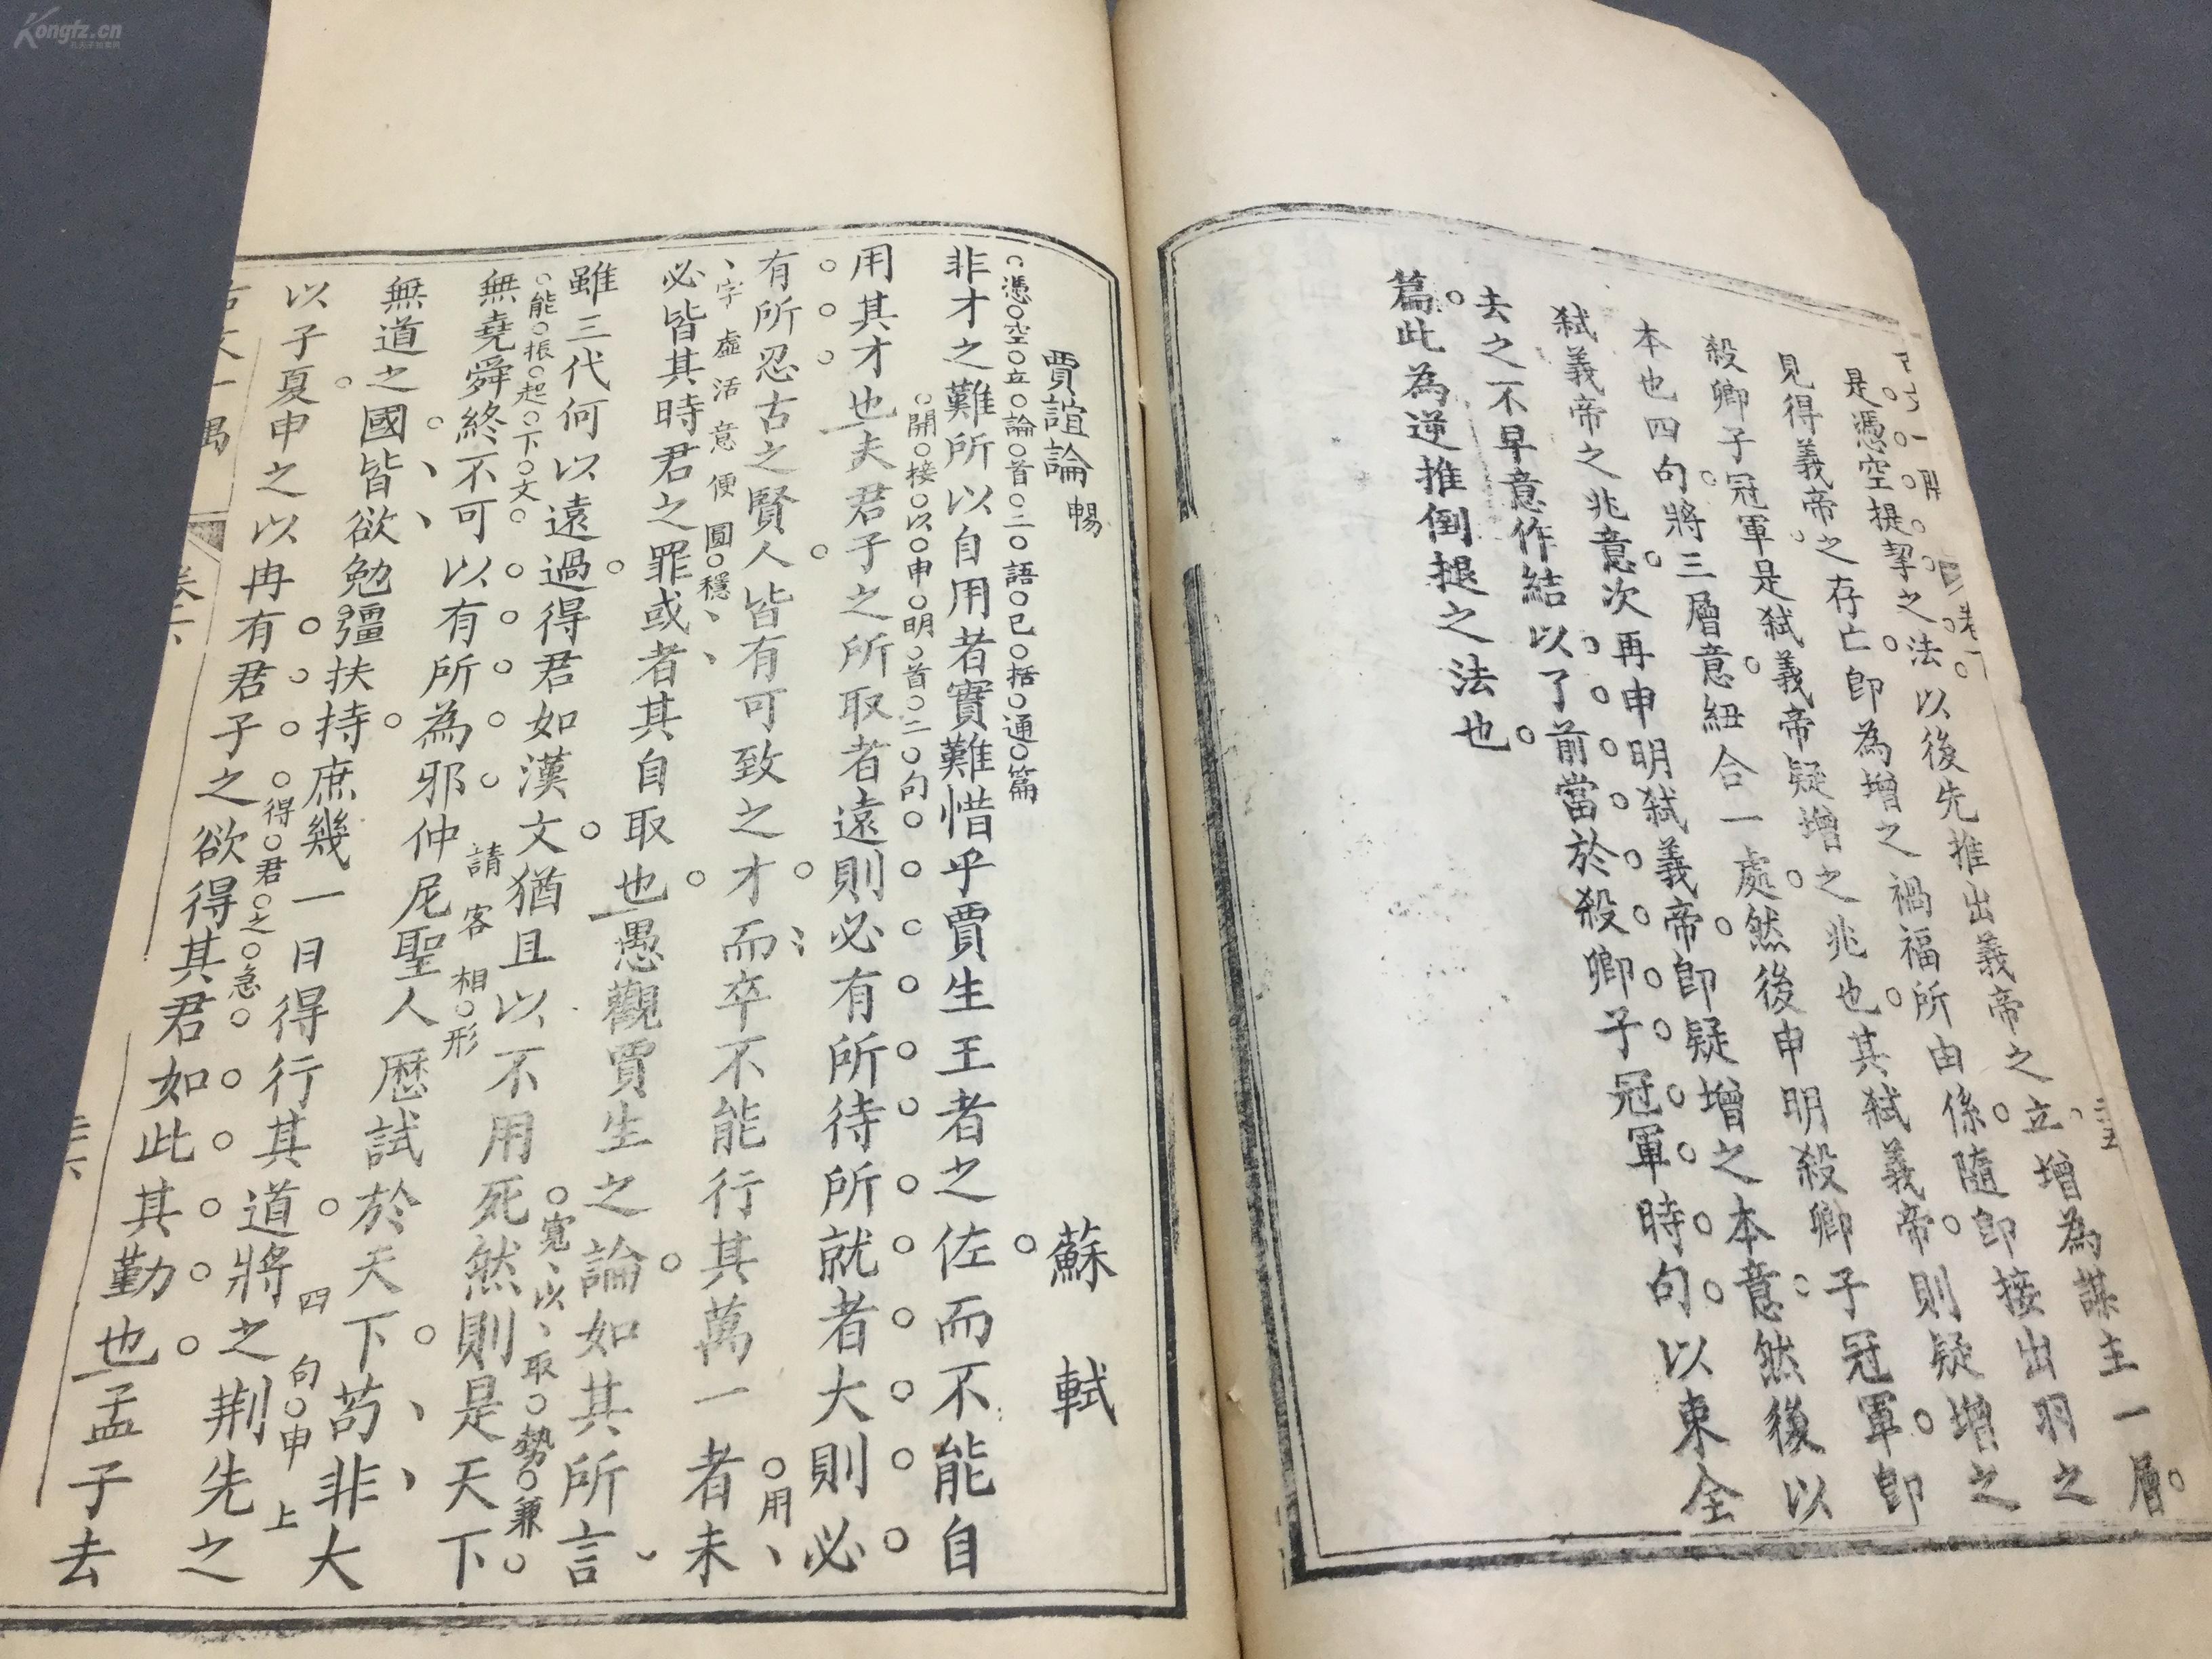 是憑空提挈之法以後先推出義帝之立增為謀主一層
見得義帝之存亡即為增之禍福所由係隨即接出羽之
殺卿子冠軍是弒義帝疑增之兆也其弒義帝則疑增之
本也四句將三層意紐合一處然後申明殺卿子冠軍即
弒義帝之兆意次再申明弒義帝即疑增之本意然後以
去之不早意作結以了前當於殺卿子冠軍時句以東全
篇此為逆推倒褪之法也
賈誼論 暢 蘇軾
憑空立論首二語已括通篇
非才之難所以自用者實難惜乎賈生王者之佐而不能自
開接以申明首二句
用其才也夫君子之所取者遠則必有所待所就者大則必
有所忍古之賢人皆有可致之才而卒不能行其萬一者未
用字虛活意便圓穩
必皆其時君之罪或者其自取也愚觀賈生之論如其所言
雖三代何以遠過得君如漢文猶且以不用死然則是天下
寬以取勢兼能振起下文
無堯舜終不可以有所為邪仲尼聖人歷試於天下苟非大
請客相形
無道之國皆欲勉彊扶持庶幾一日得行其道將之荆先之
以子夏申之以冉有君子之欲得其君如此其勤也孟子去
四句申上得君之急
卷一